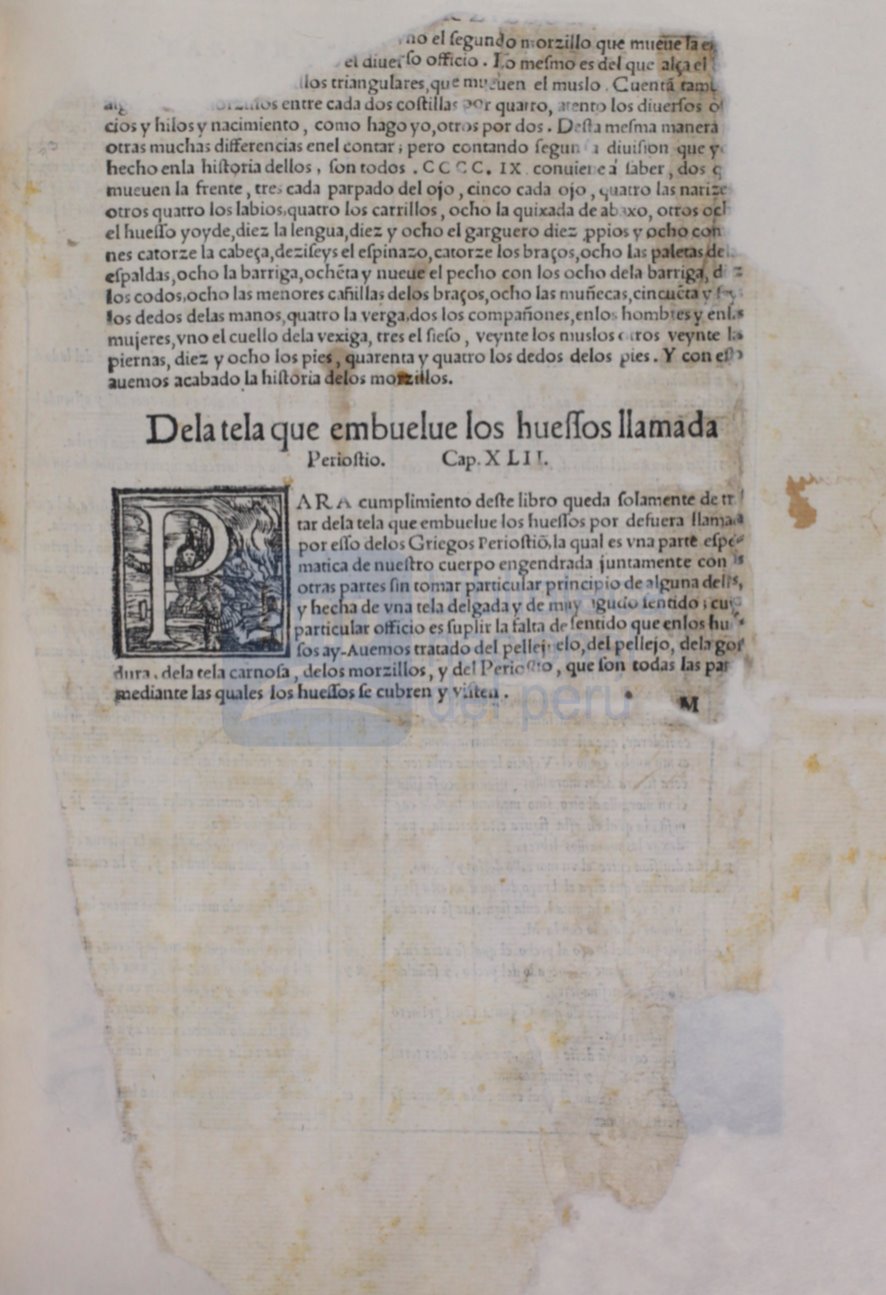 no el segundo morzillo que mueue la
el diuerso officio. Lo mesmo es del que alça el
los triangulares, que mueuen el muslo. Cuentã
entre cada dos costillas por quatro, atento los diuersos
cios y hilos y nacimiento, como hago yo, otros por dos. Desta mesma manera
otras muchas differencias enel contar; pero contando segun diuision que
hecho enla historia dellos, son todos. CCCC. IX. conuiene á saber, dos
mueuen la frente, tres cada parpado del ojo, cinco cada ojo, quatro las narize
otros quatro los labios, quatro los carrillos, ocho la quixada de abaxo, otros
el huesso yoyde, diez la lengua, diez y ocho el garguero diez ꝓpios y ocho con
nes catorze la cabeça, deziseys el espinazo, catorze los braços, ocho las paletas de
espaldas, ocho la barriga, ochẽta y nueue el pecho con los ocho dela barriga,
los codos, ocho las menores cañillas delos braços, ocho las muñecas, cincuẽta y
los dedos delas manos, quatro la verga, dos los compañones, enlos hombres y
mujeres, vno el cuello dela vexiga, tres el sieso, veynte los muslos veynte
piernas, diez y ocho los pies, quarenta y quatro los dedos delos pies. Y con
auemos acabado la historia delos morzillos.
Dela tela que embuelue los huessos llamada
Periostio. Cap. XLII.
PARA cumplimiento deste libro queda solamente de
tar dela tela que embuelue los huessos por defuera llama
por esso delos Griegos Periostiõ, la qual es vna parte
matica de nuestro cuerpo engendrada juntamente con
otras partes sin tomar particular principio de alguna
y hecha de vna tela delgada y de muy agudo sentido;
particular officio es suplir la falta de sentido que enlos
sos ay. Auemos tratado del pellejuelo, del pellejo, dela
dura, dela tela carnosa, delos morzillos, y del Periostio, que son todas las
mediante las quales los huessos se cubren y visten.
M
del perú